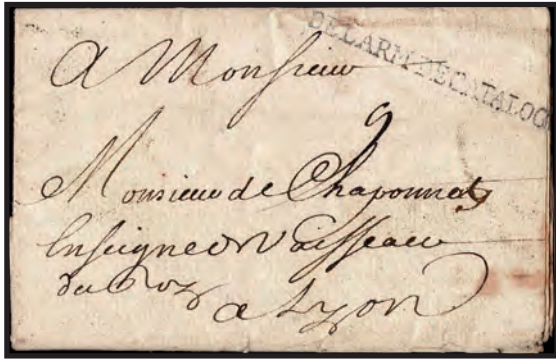 DE LARM DE CATALOG
A Monsieur
9
Monsieur de Chaponnay
Enseigne de Vaisseau
du Roy
a Lyon